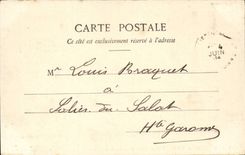 CARTE POSTALE
Ce côté est exclusivement réservé à l'adresse
JUIN
Mr Louis Braquet
à
Salies-du-Salat
Hte Garonne